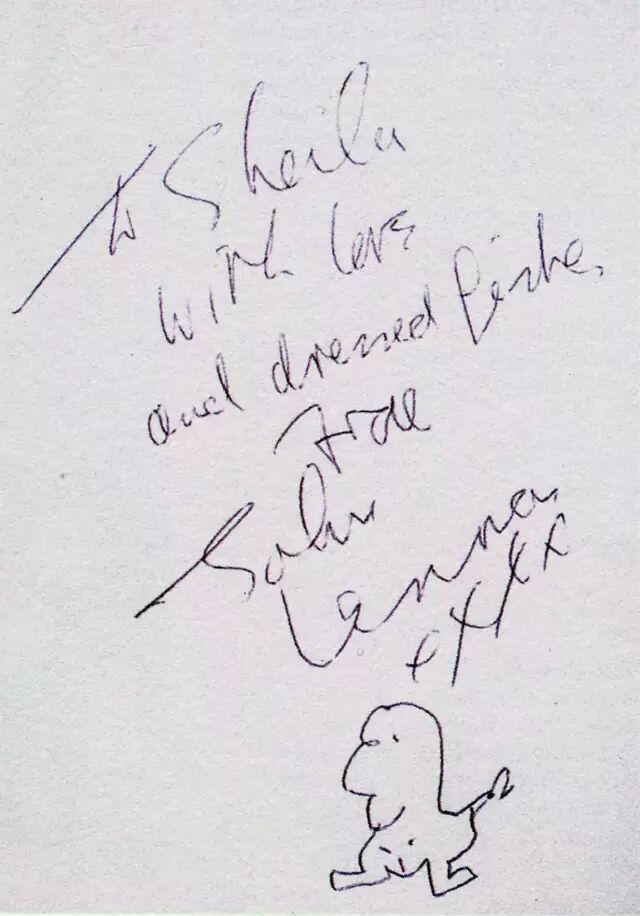 to Sheila
with love
and dressed
from
John
Lennon
xxxx